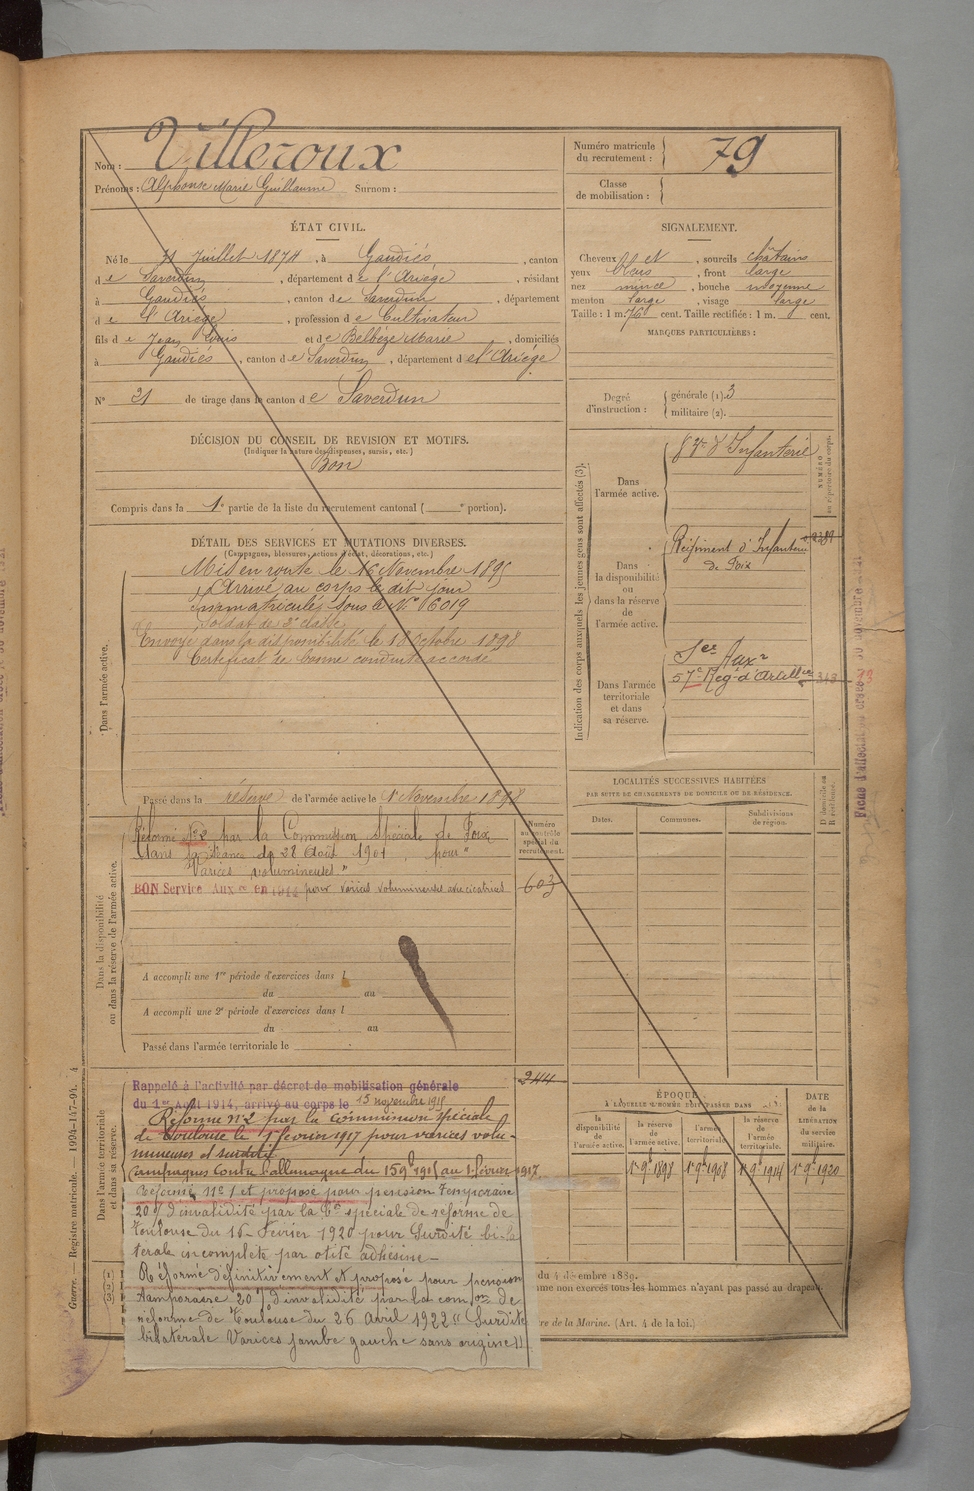 Nom : Villeroux
Prénoms : Alphonse Marie Guillaume Surnom :
Numéro matricule du recrutement : 79
Classe de mobilisation :
ÉTAT CIVIL.
Né le 31 Juillet 1874, à Gaudiés, canton
de Saverdun, département de l'Ariège, résidant
à Gaudiés, canton de Saverdun, département
de l'Ariège, profession de Cultivateur
fils de Jean Louis et de Belbèze Marie, domiciliés
à Gaudiés, canton de Saverdun, département de l'Ariège
N° 21 de tirage dans le canton de Saverdun
SIGNALEMENT.
Cheveux et, sourcils châtains
yeux bleus, front large
nez mince, bouche moyenne
menton large, visage large
Taille : 1 m. 76 cent. Taille rectifiée : 1 m. cent.
MARQUES PARTICULIÈRES :
Degré d'instruction : générale (1). 3
militaire (2).
DÉCISION DU CONSEIL DE REVISION ET MOTIFS.
(Indiquer la nature des dispenses, sursis, etc.)
Bon
Compris dans la 1e partie de la liste du recrutement cantonal ( e portion).
DÉTAIL DES SERVICES ET MUTATIONS DIVERSES.
(Campagnes, blessures, actions d'éclat, décorations, etc.)
Dans l'armée active.
Mis en route le 16 Novembre 1895
Arrivé au corps le dit jour
Immatriculé sous le N° 16019
Soldat de 2e classe
Envoyé dans la disponibilité le 18 Octobre 1898
Certificat de bonne conduite accordé
Passé dans la réserve de l'armée active le 1r Novembre 1898
Indication des corps auxquels les jeunes gens sont affectés (3).
NUMÉRO au répertoire du corps.
Dans l'armée active.
d'Infanterie
Dans la disponibilité ou dans la réserve de l'armée active.
Régiment d'Infanterie
de Foix
Dans l'armée territoriale et dans sa réserve.
Sce Auxre
57e Rég. d'Artillie
LOCALITÉS SUCCESSIVES HABITÉES
PAR SUITE DE CHANGEMENTS DE DOMICILE OU DE RÉSIDENCE.
D domicile ou R résidence.
Dates.
Communes.
Subdivisions de région.
Dans la disponibilité ou dans la réserve de l'armée active.
Numéro au contrôle spécial du recrutement.
Réformé N° 2 par la Commission Spéciale de Foix
dans sa séance du 28 Août 1901 pour "
Varices volumineuses "
BON Service Aux re en 1914 pour varices volumineuses avec cicatrices
603
A accompli une 1re période d'exercices dans l
du au
A accompli une 2e période d'exercices dans l
du au
Passé dans l'armée territoriale le
Dans l'armée territoriale et dans sa réserve.
244
Rappelé à l'activité par décret de mobilisation générale
du 1er Août 1914, arrivé au corps le 15 novembre 1915
Réformé n° 2 par la commission spéciale
de Toulouse le 1 février 1917 pour varices volu-
mineuses et surdité
Campagnes contre l'allemagne du 15 9b 1915 au 1 février 1917
Réformé n° 1 et proposé pour pension temporaire
20% d'invalidité par la Con spéciale de réforme de
Toulouse du 16 Février 1920 pour Surdité bila
térale incomplète par otite adhésive —
Réformé définitivement et proposé pour pension
temporaire 20% d'invalidité par la comon de
réforme de Toulouse du 26 Avril 1922 "(Surdité
bilatérale Varices jambe gauche sans origine)
ÉPOQUE
À LAQUELLE L'HOMME DOIT PASSER DANS
DATE de la LIBÉRATION du service militaire.
la disponibilité de l'armée active.
la réserve de l'armée active.
l'armée territoriale.
la réserve de l'armée territoriale.
1r 9b 1898
1r 9b 1908
1r 9b 1914
1r 9b 1920
du 4 décembre 1889.
mme non exercés tous les hommes n'ayant pas passé au drapeau.
re de la Marine. (Art. 4 de la loi.)
Guerre. — Registre matricule. — 1924-147-94. 4